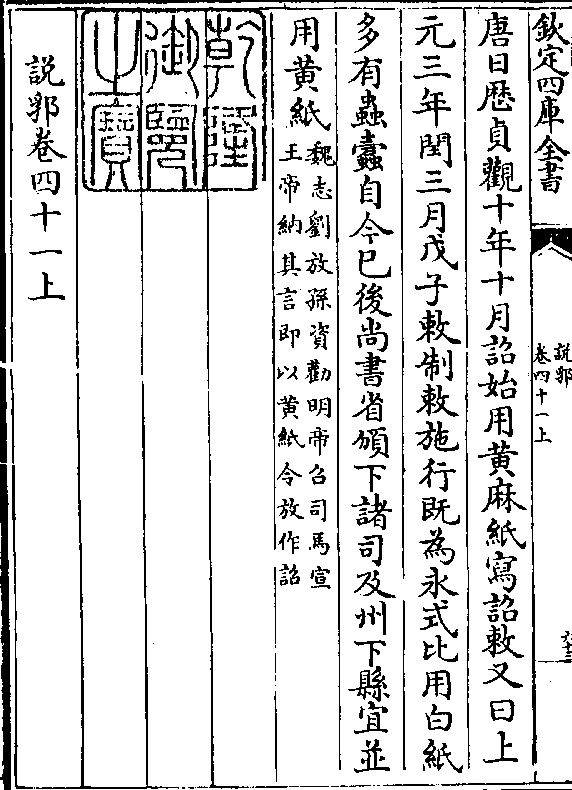 欽定四庫全書
說郛
卷四十一上
六十三
唐日歴貞觀十年十月詔始用黄麻紙寫詔敕又曰上
元三年閏三月戊子敕制敕施行既為永式比用白紙
多有蟲蠧自今已後尚書省頒下諸司及州下縣宜並
用黄紙
魏志劉放孫資勸明帝召司馬宣
王帝納其言即以黄紙令放作詔
乾隆
御覽
之寶
說郛卷四十一上